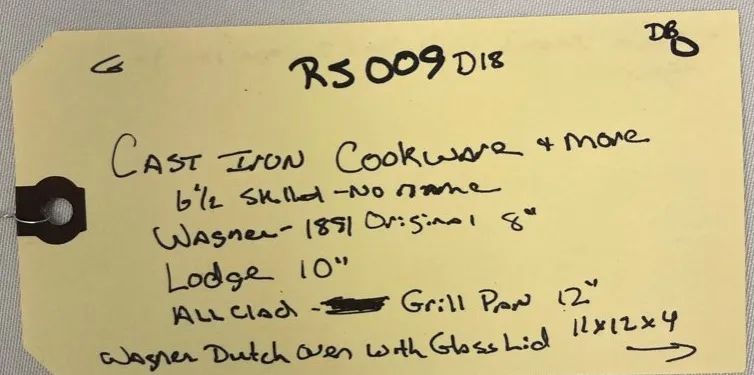 G RS009 D18 DB
CAST IRON Cookware + more
6 1/2 Skillet - No name
Wagner - 1891 Original 8"
Lodge 10"
ALL Clad - Grill PAN 12"
Wagner Dutch Oven with Glass Lid 11x12x4 →